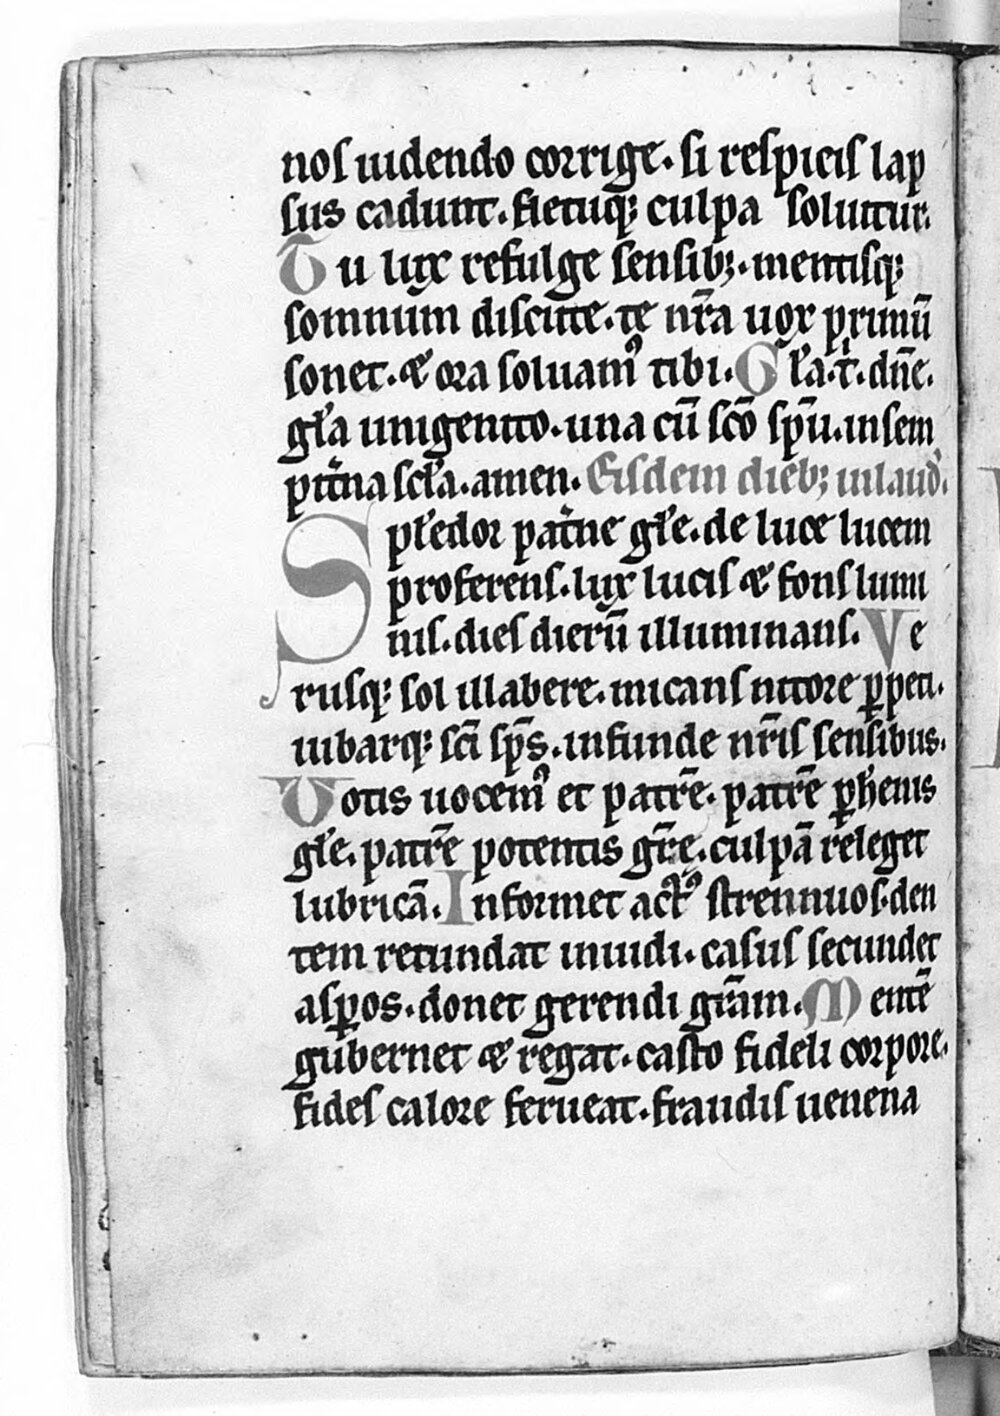 nos uidendo corrige. si respicis lap
sus cadunt. fletuq; culpa soluitur.
Tu lux refulge sensib;. mentisq;
somnum discute. te nr̄a uox primū
sonet. & ora soluamꝰ tibi. Gl̄a.t̄. dn̄e.
gl̄a unigenito. una cū sc̄o sp̄u. in sem
pit̄na sc̄la. amen. Eisdem dieb; in laud̄.
Spl̄edor pat̄ne gl̄e. de luce lucem
proferens. lux lucis & fons lumi
nis. dies dierū illuminans. Ve
rusq; sol illabere. micans nitore ꝑpeti.
iubarq; sc̄i sp̄s. infunde nr̄is sensibus.
Votis uocemꝰ et patrē. patrē ꝑhenis
gl̄e. patrē potentis gr̄e. culpā releget
lubricā. Informet actꝰ strennuos. den
tem retundat inuidi. casus secundet
asꝑos. donet gerendi gr̄am. Mentē
gubernet & regat. casto fideli corpore.
fides calore ferueat. fraudis uenena